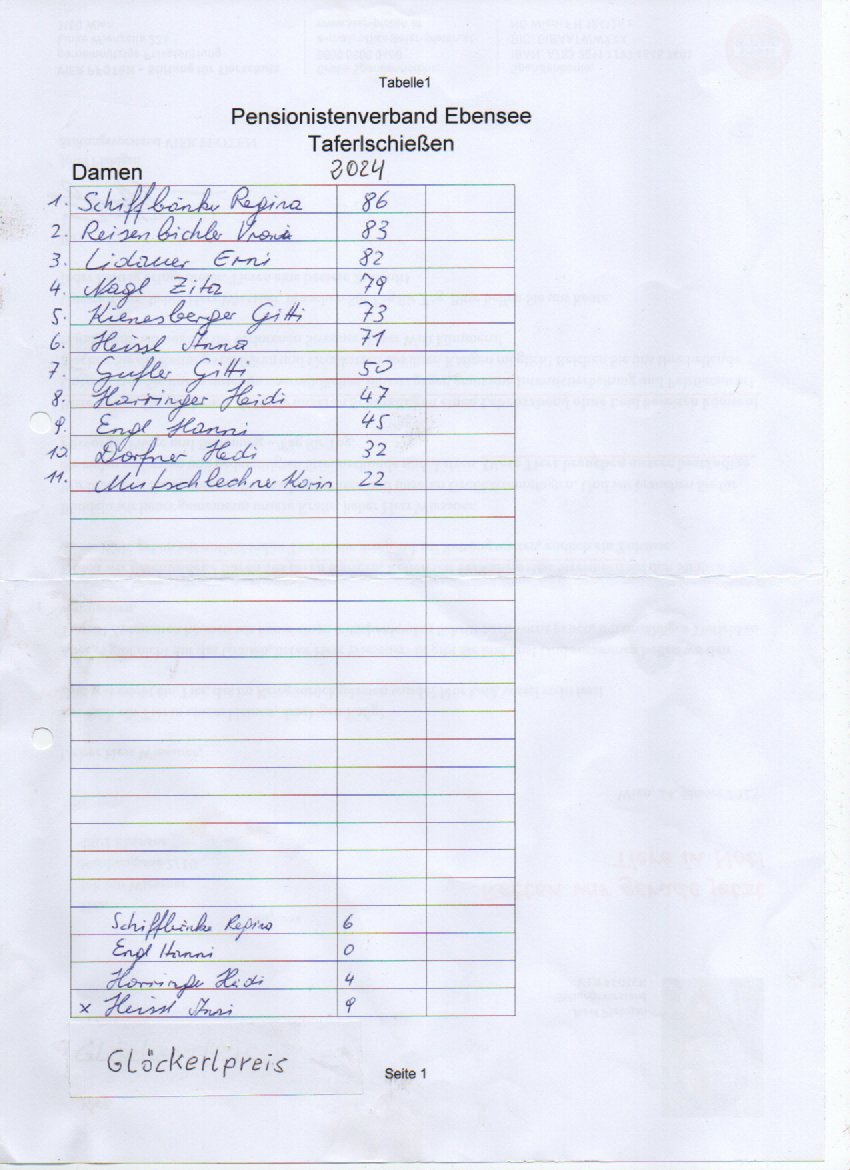 Tabelle1
Pensionistenverband Ebensee
Taferlschießen
Damen 2024
1. Schiffbänker Regina 86
2. Reisenbichler Vroni 83
3. Lidauer Erni 82
4. Nagl Zita 79
5. Kienesberger Gitti 73
6. Heissl Anna 71
7. Gufler Gitti 50
8. Harringer Heidi 47
9. Engl Hanni 45
10. Dorfner Hedi 32
11. Mutschlechner Karin 22
Schiffbänker Regina 6
Engl Hanni 0
Harringer Heidi 4
x Heissl 9
Glöckerlpreis
Seite 1